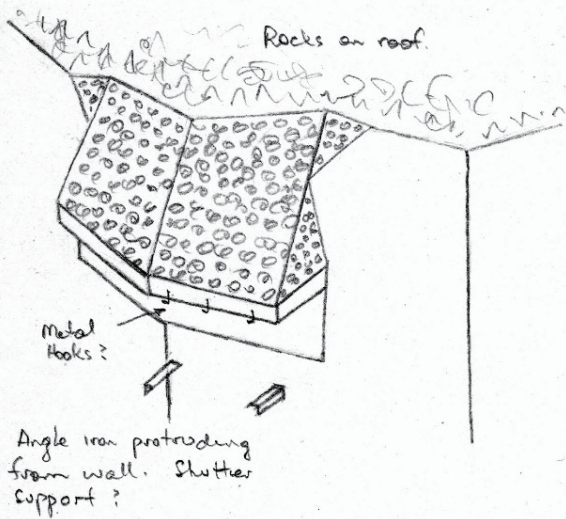 Rocks on roof.
Metal
Hooks?
Angle iron protruding
from wall. Shutter
support?